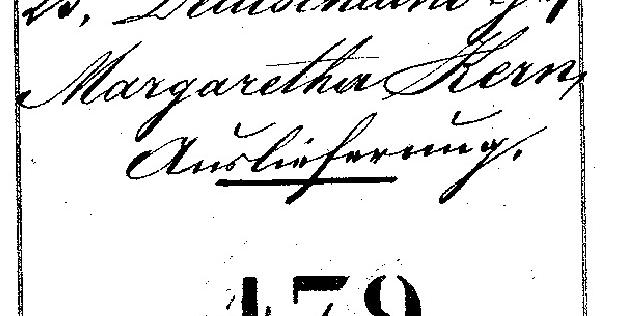 Deutschland
Margaretha Kern,
Auslieferung.
479